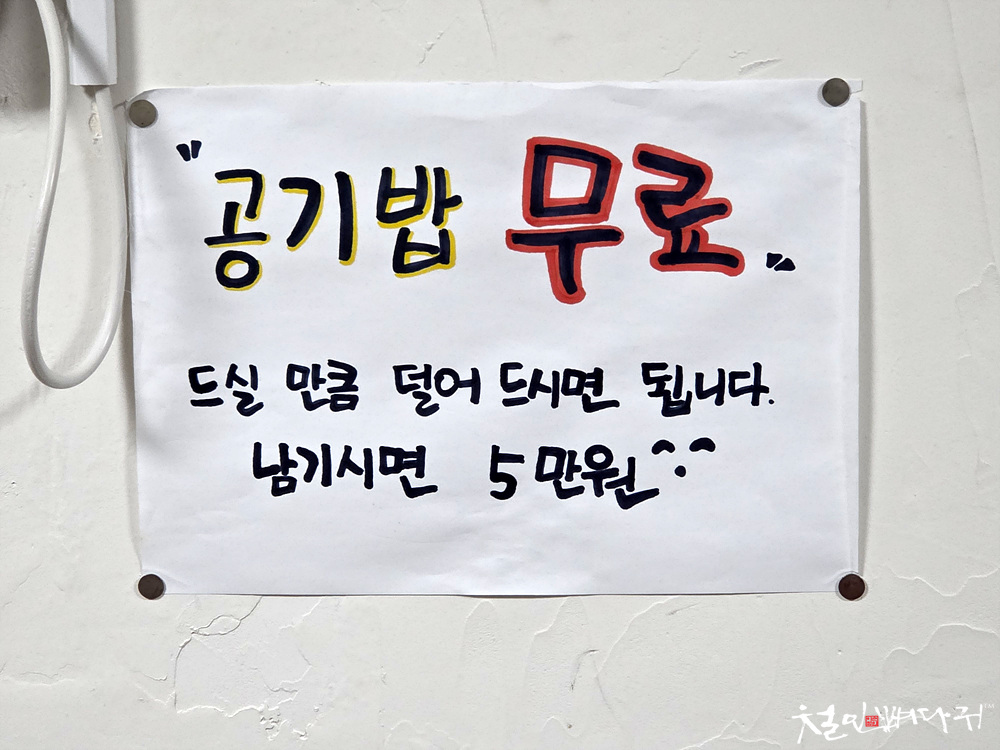 "공기밥 무료"
드실 만큼 덜어 드시면 됩니다.
남기시면 5만원^.^
철민뼈다귀™